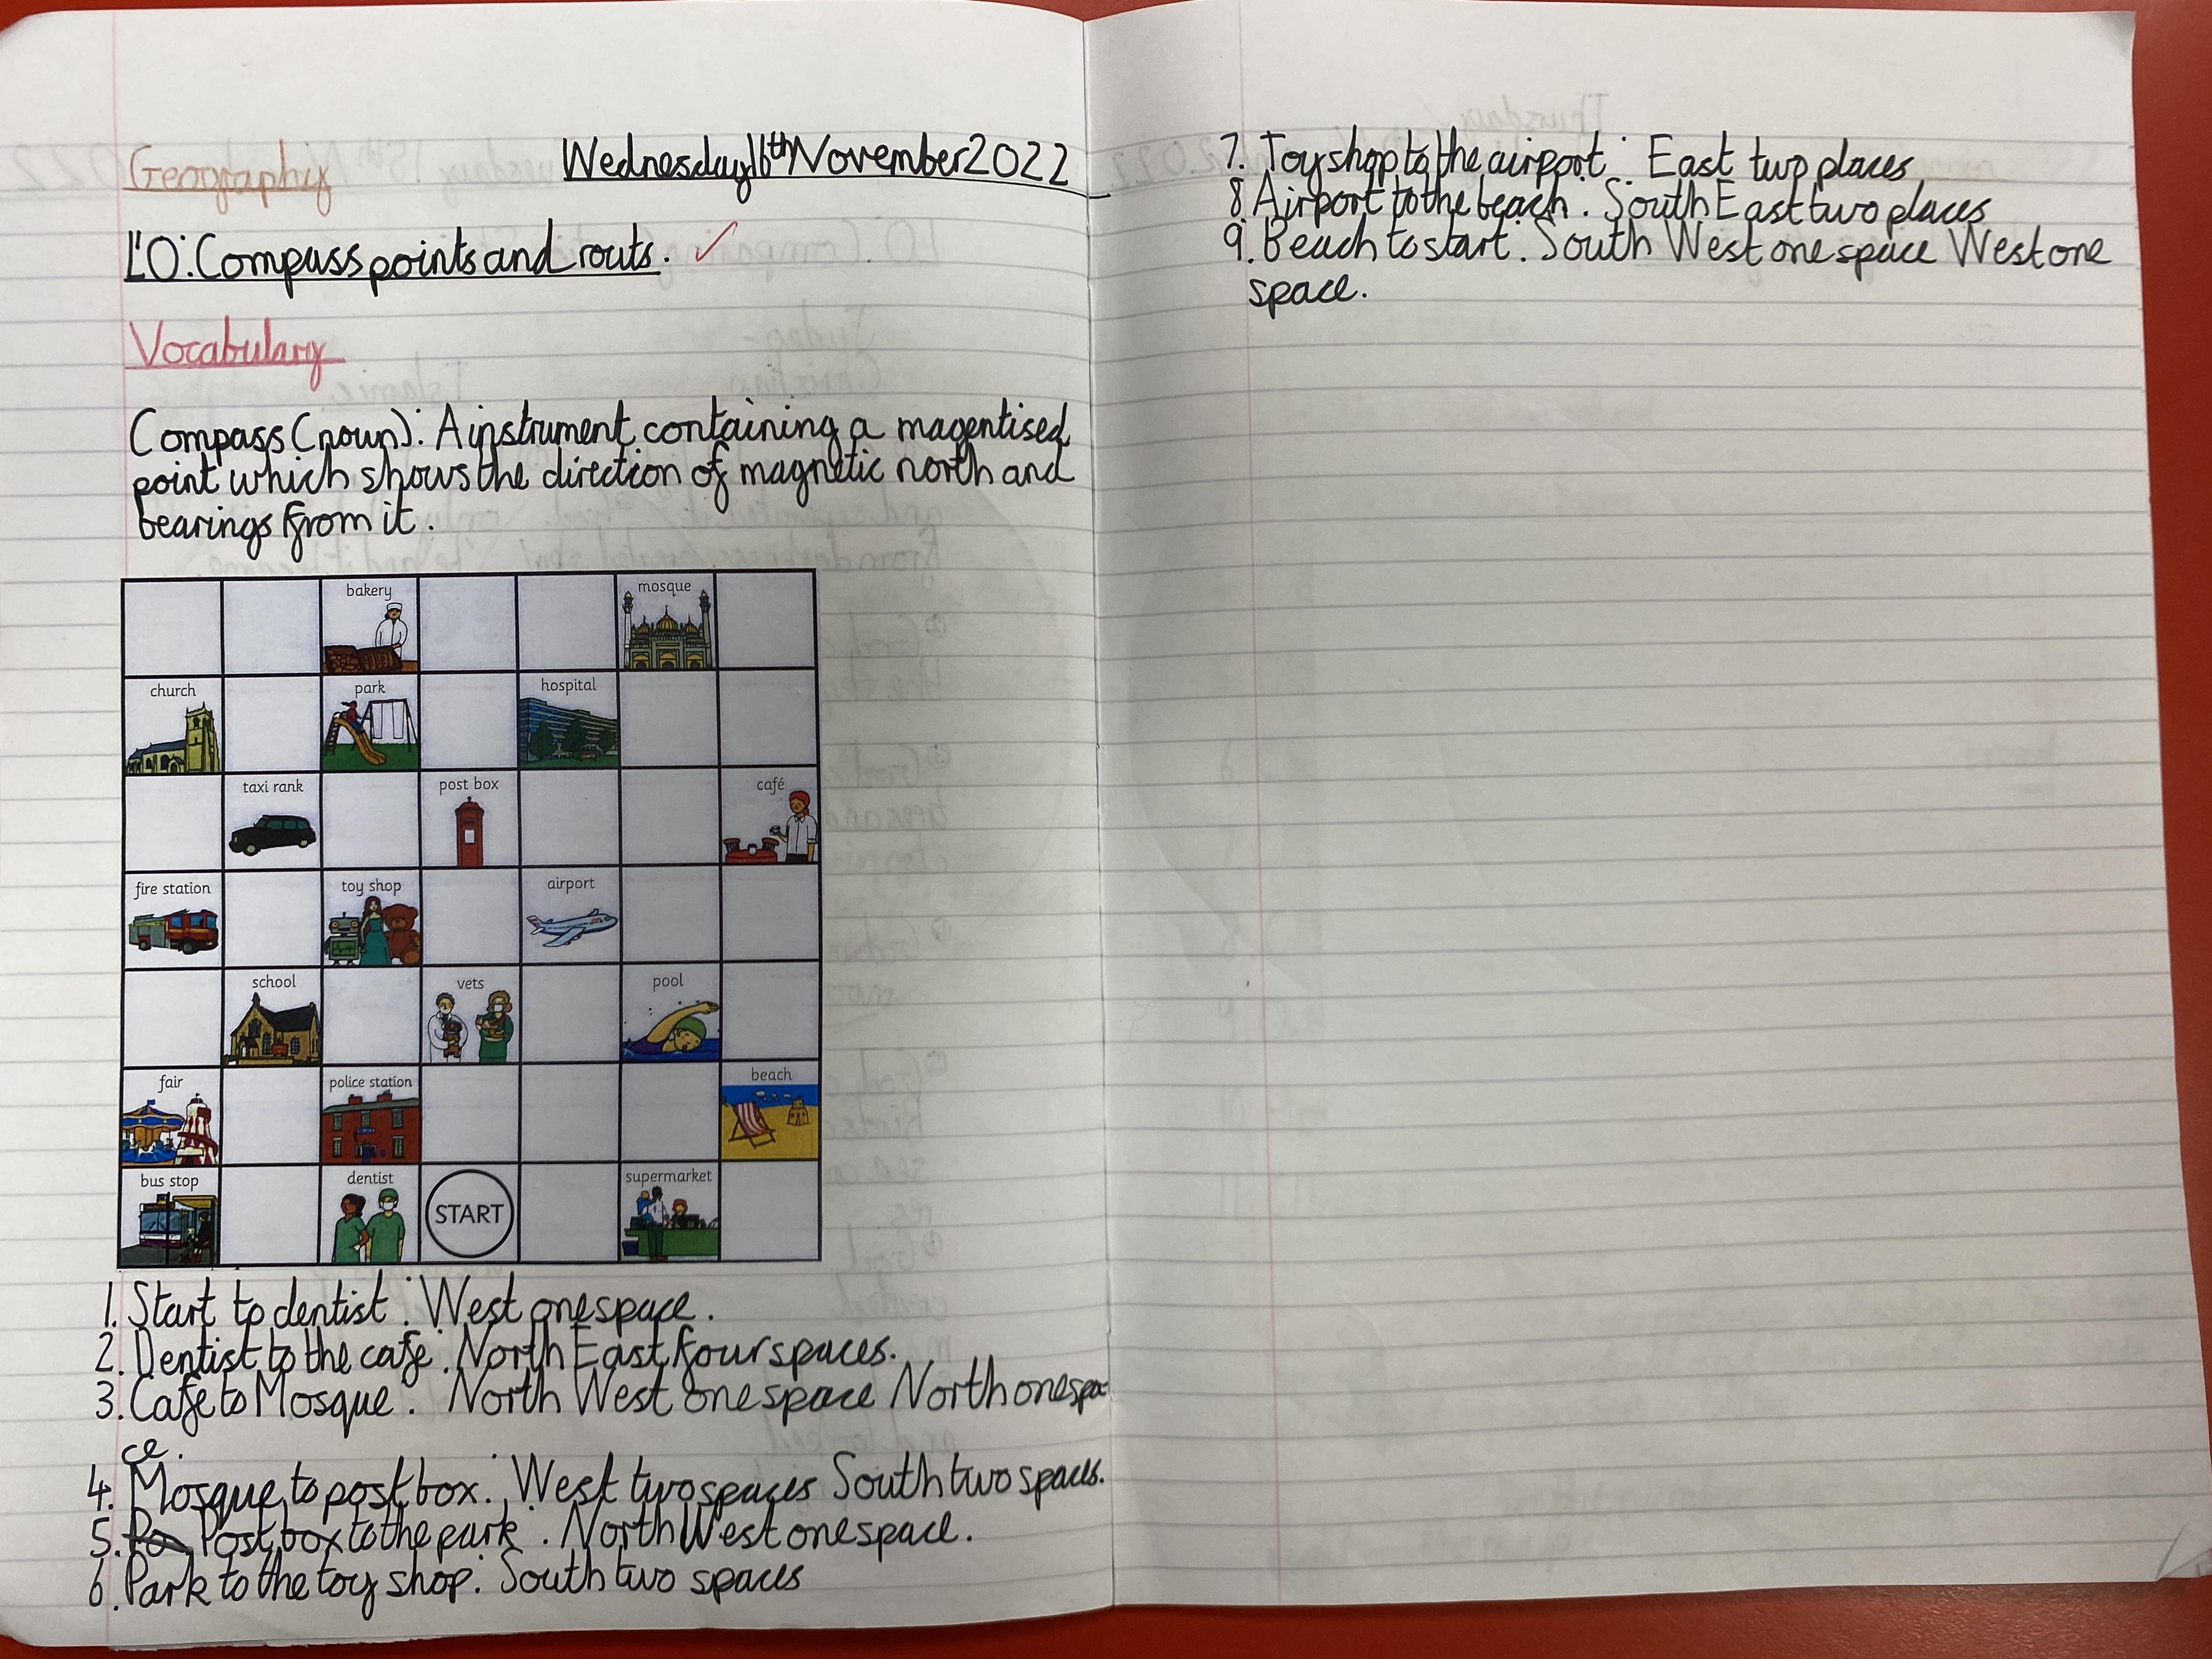 Geography
Wednesday 16th November 2022
L.O: Compass points and routs.
Vocabulary
Compass (noun): A instrument containing a magentised
point which shows the direction of magnetic north and
bearings from it.
bakery
mosque
church
park
hospital
taxi rank
post box
café
fire station
toy shop
airport
school
vets
pool
fair
police station
beach
bus stop
dentist
START
supermarket
1. Start to dentist: West one space.
2. Dentist to the cafe: North East four spaces.
3. Cafe to Mosque: North West one space North one spa
ce.
4. Mosque to post box: West two spaces South two spaces.
5. Po Post box to the park: North West one space.
6. Park to the toy shop: South two spaces
7. Toy shop to the airport: East two places
8. Airport to the beach: South East two places
9. Beach to start: South West one space West one
space.